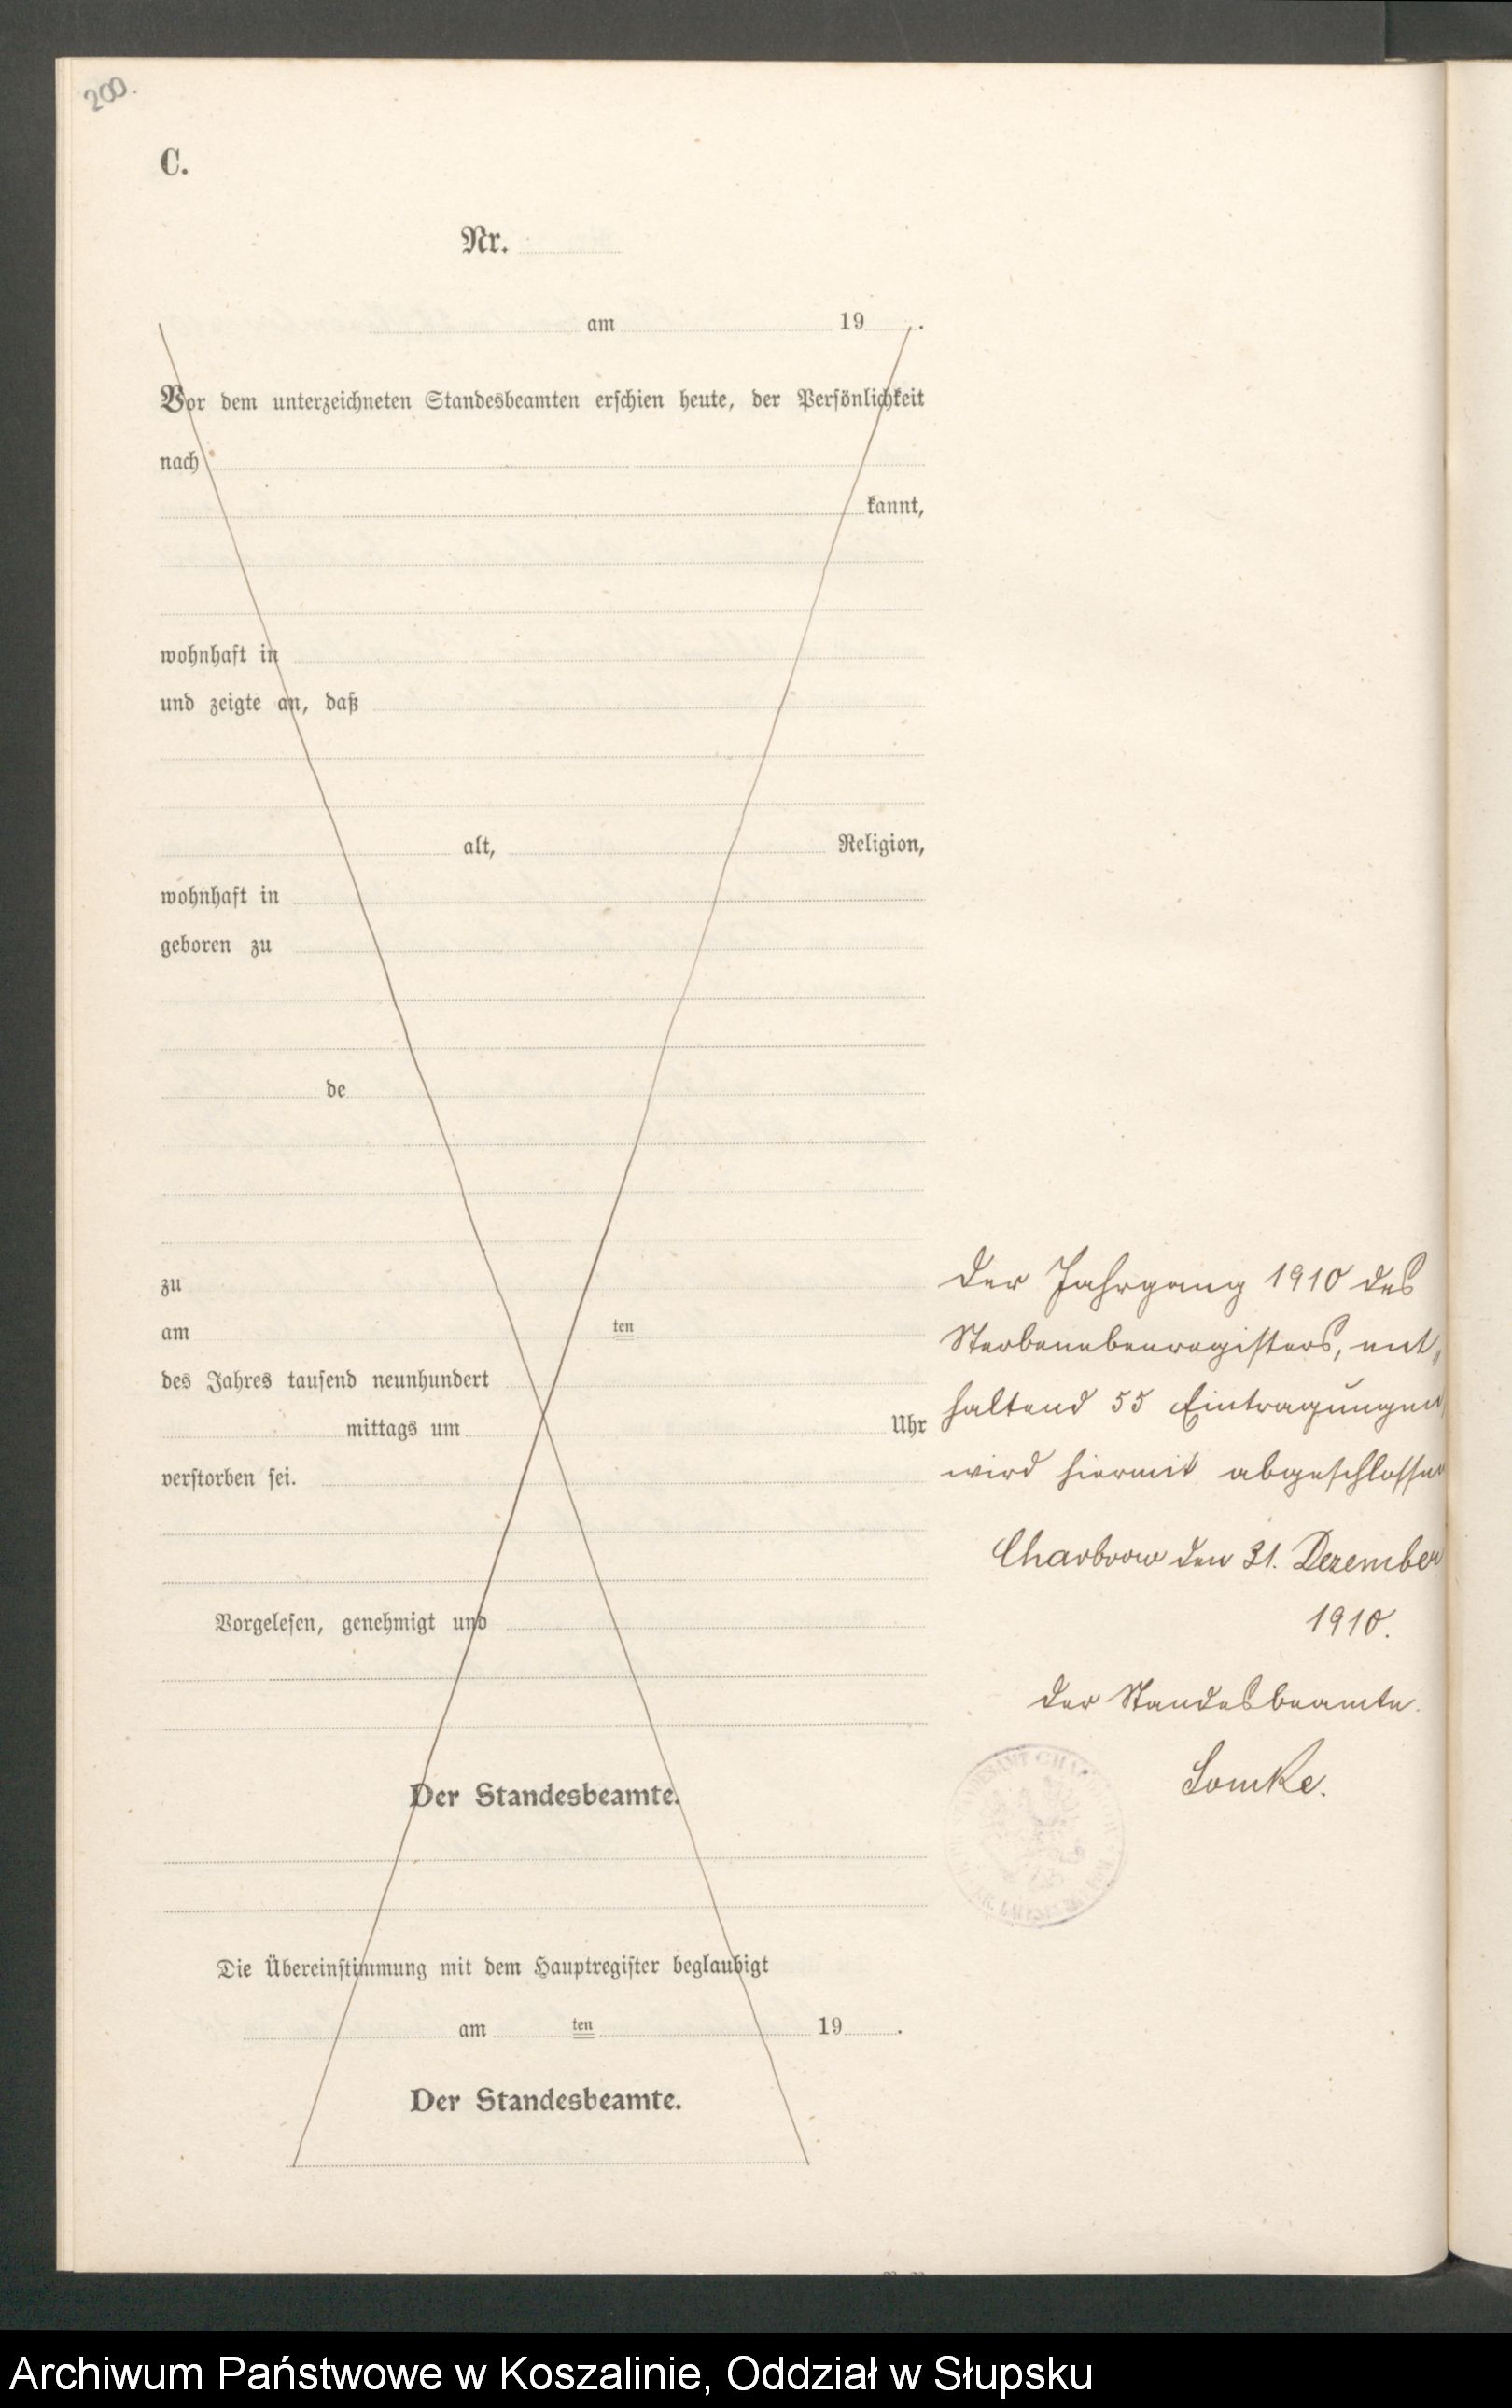 200.
C.
Nr.
am 19 .
Vor dem unterzeichneten Standesbeamten erschien heute, der Persönlichkeit
nach
kannt,
wohnhaft in
und zeigte an, daß
alt, Religion,
wohnhaft in
geboren zu
de
zu
am ten
des Jahres tausend neunhundert
mittags um Uhr
verstorben sei.
Vorgelesen, genehmigt und
Der Standesbeamte.
Die Übereinstimmung mit dem Hauptregister beglaubigt
am ten 19 .
Der Standesbeamte.
Der Jahrgang 1910 des
Sterbenebenregisters, ent,
haltend 55 Eintragungen
wird hiermit abgeschlossen
Charbrow den 31. Dezember
1910.
Der Standesbeamte.
Archiwum Państwowe w Koszalinie, Oddział w Słupsku